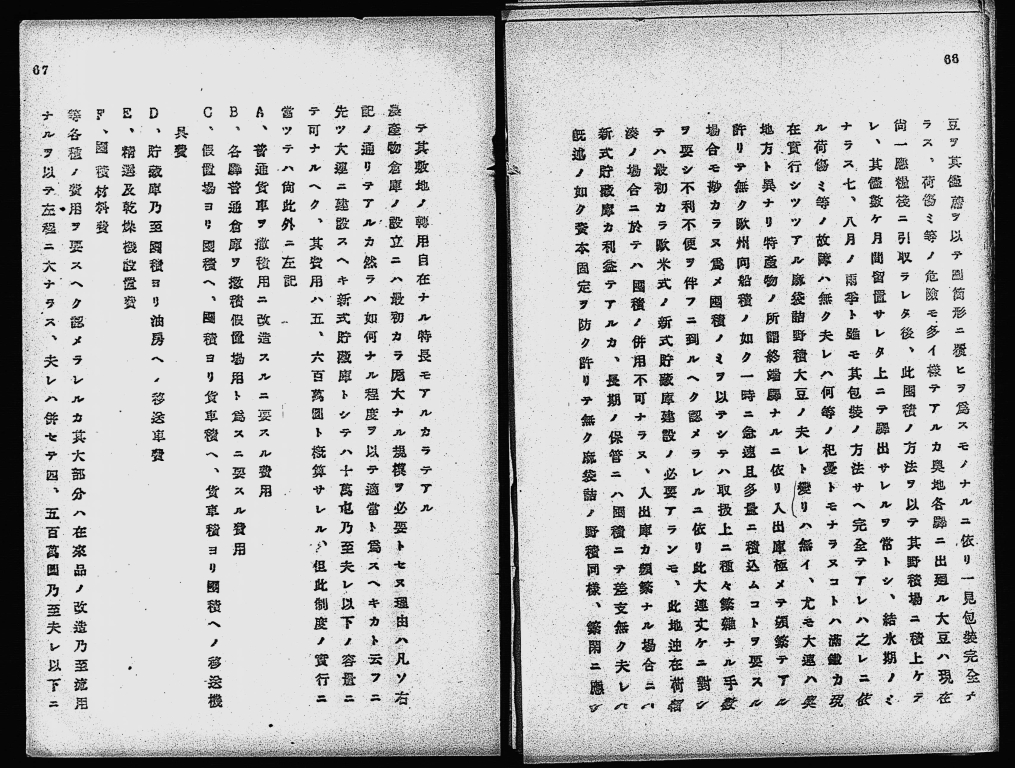 66
豆ヲ其儘蓆ヲ以テ圓筒形ニ覆ヒヲ爲スモノナルニ依リ一見包裝完全ナ
ラス、荷傷ミ等ノ危險モ多イ樣テアルカ奧地各驛ニ出廻ル大豆ハ現在
尙一應糧棧ニ引取ラレタ後、此圍積ノ方法ヲ以テ其野積場ニ積上ケテ
レ、其儘數ケ月間留置サレタ上ニテ驛出サレルヲ常トシ、結氷期ノミ
ナラス七、八月ノ雨季ト雖モ其包裝ノ方法サヘ完全テアレハ之レニ依
ル荷傷ミ等ノ故障ハ無ク夫レハ何等ノ杞憂トモナラヌコトハ滿鐵カ現
在實行シツツアル麻袋詰野積大豆ノ夫レト變リハ無イ、尤モ大連ハ奧
地方ト異ナリ特產物ノ所謂終端驛ナルニ依リ入出庫極メテ頻繁テアル
許リテ無ク歐州向船積ノ如ク一時ニ急速且多量ニ積込ムコトヲ要スル
場合モ尠カラヌ爲メ圍積ノミヲ以テシテハ取扱上ニ種々繁雜ナル手數
ヲ要シ不利不便ヲ伴フニ到ルヘク認メラレルニ依リ此大連丈ケニ對シ
テハ最初カラ歐米式ノ新式貯藏庫建設ノ必要アランモ、此地注在荷稍
湊ノ場合ニ於テハ圍積ノ併用不可ナラヌ、入出庫カ頻繁ナル場合ニハ
新式貯藏庫カ利益テアルカ、長期ノ保管ニハ圍積ニテ差支無ク夫レハ
旣述ノ如ク資本固定ヲ防ク許リテ無ク麻袋詰ノ野積同樣、繁閑ニ應シ
67
テ其敷地ノ轉用自在ナル特長モアルカラテアル
農產物倉庫ノ設立ニハ最初カラ厖大ナル規模ヲ必要トセヌ理由ハ凡ソ右
記ノ通リテアルカ然ラハ如何ナル程度ヲ以テ適當ト爲スヘキカト云フニ
先ツ大連ニ建設スヘキ新式貯藏庫トシテハ十萬屯乃至夫レ以下ノ容量ニ
テ可ナルヘク、其費用ハ五、六百萬圓ト槪算サレル、但此制度ノ實行ニ
當ツテハ尙此外ニ左記
A、普通貨車ヲ撒積用ニ改造スルニ要スル費用
B、各驛普通倉庫ヲ撒積假置場用ト爲スニ要スル費用
C、假置場ヨリ圍積ヘ、圍積ヨリ貨車積ヘ、貨車積ヨリ圍積ヘノ移送機
具費
D、貯藏庫乃至圍積ヨリ油房ヘノ移送車費
E、精選及乾燥機設置費
F、圍積材料費
等各種ノ費用ヲ要スヘク認メラレルカ其大部分ハ在來品ノ改造乃至流用
ナルヲ以テ左程ニ大ナラス、夫レハ併セテ四、五百萬圓乃至夫レ以下ニ